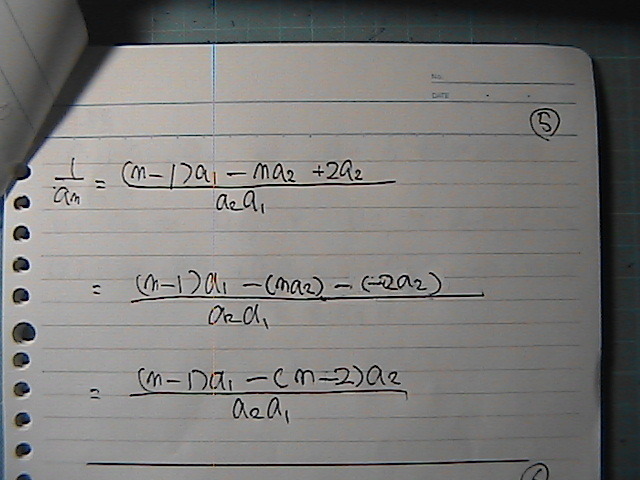 No.
DATE
⑤
1/aₙ = ((n-1)a₁ - na₂ + 2a₂)/(a₂a₁)
= ((n-1)a₁ - (na₂) - (-2a₂))/(a₂a₁)
= ((n-1)a₁ - (n-2)a₂)/(a₂a₁)